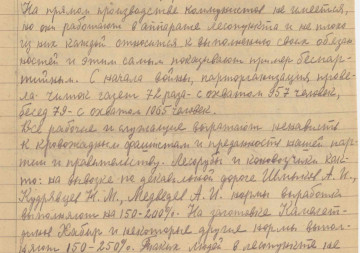 На прямом производстве коммунистов не имеется,
но они работают в аппарате лесопункта и не плохо
из них каждый относится к выполнению своих обязан-
ностей и этим самым показывают пример беспар-
тийным. С начала войны, парторганизация прове-
ла читок газет 72 раза - с охватом 957 человек,
бесед 79 - с охватом 1065 человек.
Все рабочие и служащие выражают ненависть
к кровожадным фашистам и преданность нашей пар-
тии и правительству. Лесорубы и коновозчики как-
то: на вывозке по декавильной дороге А. И.,
Кудрявцев К. М., Медведев А. И. нормы выработки
выполняют на 150-200%. На заготовке
Хабир и некоторые другие нормы выпол-
няют 150-250%. Таких людей в лесопункте не